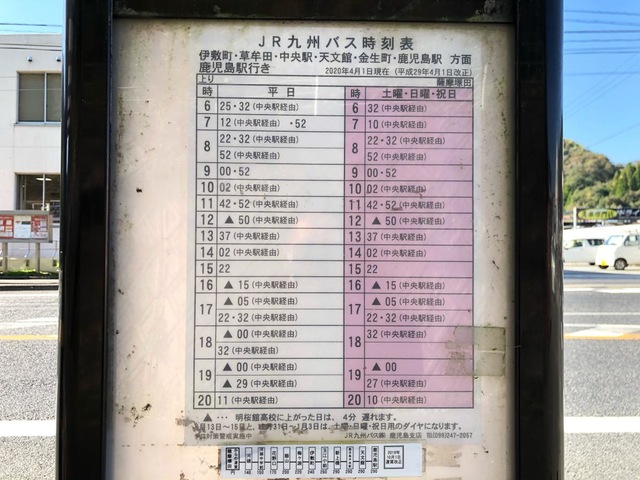 JR九州バス時刻表
伊敷町・草牟田・中央駅・天文館・金生町・鹿児島駅 方面
鹿児島駅行き 2020年4月1日現在（平成29年4月1日改正）
上り 薩摩塚田
時 平日 時 土曜・日曜・祝日
6 25・32(中央駅経由) 6 32(中央駅経由)
7 12(中央駅経由)・52 7 10(中央駅経由)
8 22・32(中央駅経由) 8 22・32(中央駅経由)
52(中央駅経由) 52(中央駅経由)
9 00・52 9 00・52
10 02(中央駅経由) 10 02(中央駅経由)
11 42・52(中央駅経由) 11 42・52(中央駅経由)
12 ▲50(中央駅経由) 12 ▲50(中央駅経由)
13 37(中央駅経由) 13 37(中央駅経由)
14 02(中央駅経由) 14 02(中央駅経由)
15 22 15 22
16 ▲15(中央駅経由) 16 ▲15(中央駅経由)
17 ▲05(中央駅経由) 17 ▲05(中央駅経由)
22・32(中央駅経由) 22・32(中央駅経由)
18 ▲00(中央駅経由) 18 32(中央駅経由)
32(中央駅経由)
19 ▲00(中央駅経由) 19 ▲00
▲29(中央駅経由) 27(中央駅経由)
20 11(中央駅経由) 20 10(中央駅経由)
▲… 明桜館高校に上がった日は、4分 遅れます。
月13日～15日と、12月31日～1月3日は、土曜・日曜・祝日用のダイヤになります。
JR九州バス㈱ 鹿児島支店 ℡(099)247-2057